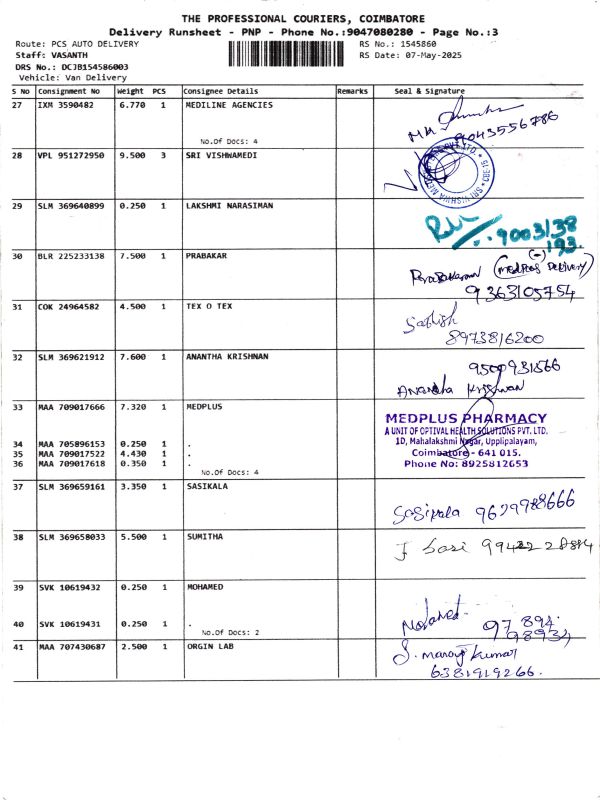 THE PROFESSIONAL COURIERS, COIMBATORE
Delivery Runsheet - PNP - Phone No.:9047080280 - Page No.:3
Route: PCS AUTO DELIVERY RS No.: 1545860
Staff: VASANTH RS Date: 07-May-2025
DRS No.: DCJB154586003
Vehicle: Van Delivery
S No Consignment No Weight PCS Consignee Details Remarks Seal & Signature
27 IXM 3590482 6.770 1 MEDILINE AGENCIES
No.Of Docs: 4
9043556786
28 VPL 951272950 9.500 3 SRI VISHWAMEDI
29 SLM 369640899 0.250 1 LAKSHMI NARASIMAN
9003138
193
30 BLR 225233138 7.500 1 PRABAKAR
Prabakaran (Medplus Delivery)
9363105754
31 COK 24964582 4.500 1 TEX O TEX
Satish
8973816200
32 SLM 369621912 7.600 1 ANANTHA KRISHNAN
9500931566
Anantha Krishnan
33 MAA 709017666 7.320 1 MEDPLUS
MEDPLUS PHARMACY
A UNIT OF OPTIVAL HEALTH SOLUTIONS PVT. LTD.
34 MAA 705896153 0.250 1 .
1D, Mahalakshmi Nagar, Upplipalayam,
35 MAA 709017522 4.430 1 .
Coimbatore - 641 015.
36 MAA 709017618 0.350 1 .
Phone No: 8925812653
No.Of Docs: 4
37 SLM 369659161 3.350 1 SASIKALA
Sasikala 9629988666
38 SLM 369658033 5.500 1 SUMITHA
39 SVK 10619432 0.250 1 MOHAMED
40 SVK 10619431 0.250 1 .
No.Of Docs: 2
Mohamed 97 894
98934
41 MAA 707430687 2.500 1 ORGIN LAB
S. Manoj Kumar
6381919266.